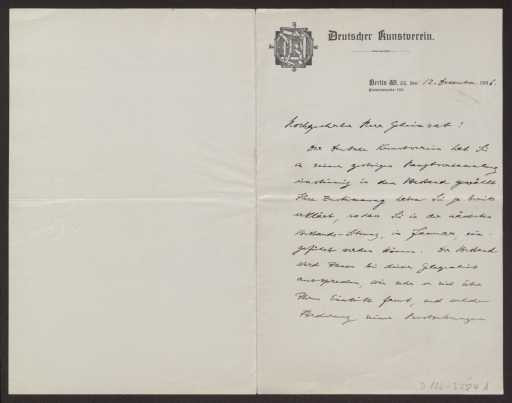 Deutscher Kunstverein.
Berlin W. 12. Dezember 1906.
Hochgeehrter Herr Geheimrat!
Der Deutsche Kunstverein hat Sie
in seiner gestrigen Hauptversammlung
einstimmig in den Vorstand gewählt.
Ihre Zustimmung haben Sie ja bereits
erklärt, sodass Sie in der nächsten
Vorstands-Sitzung, im Januar, ein-
geführt werden können. Der Vorstand
wird Ihnen bei dieser Gelegenheit
aussprechen, wie sehr er sich über
Ihren Eintritt freut, und welche
Förderung seiner Bestrebungen